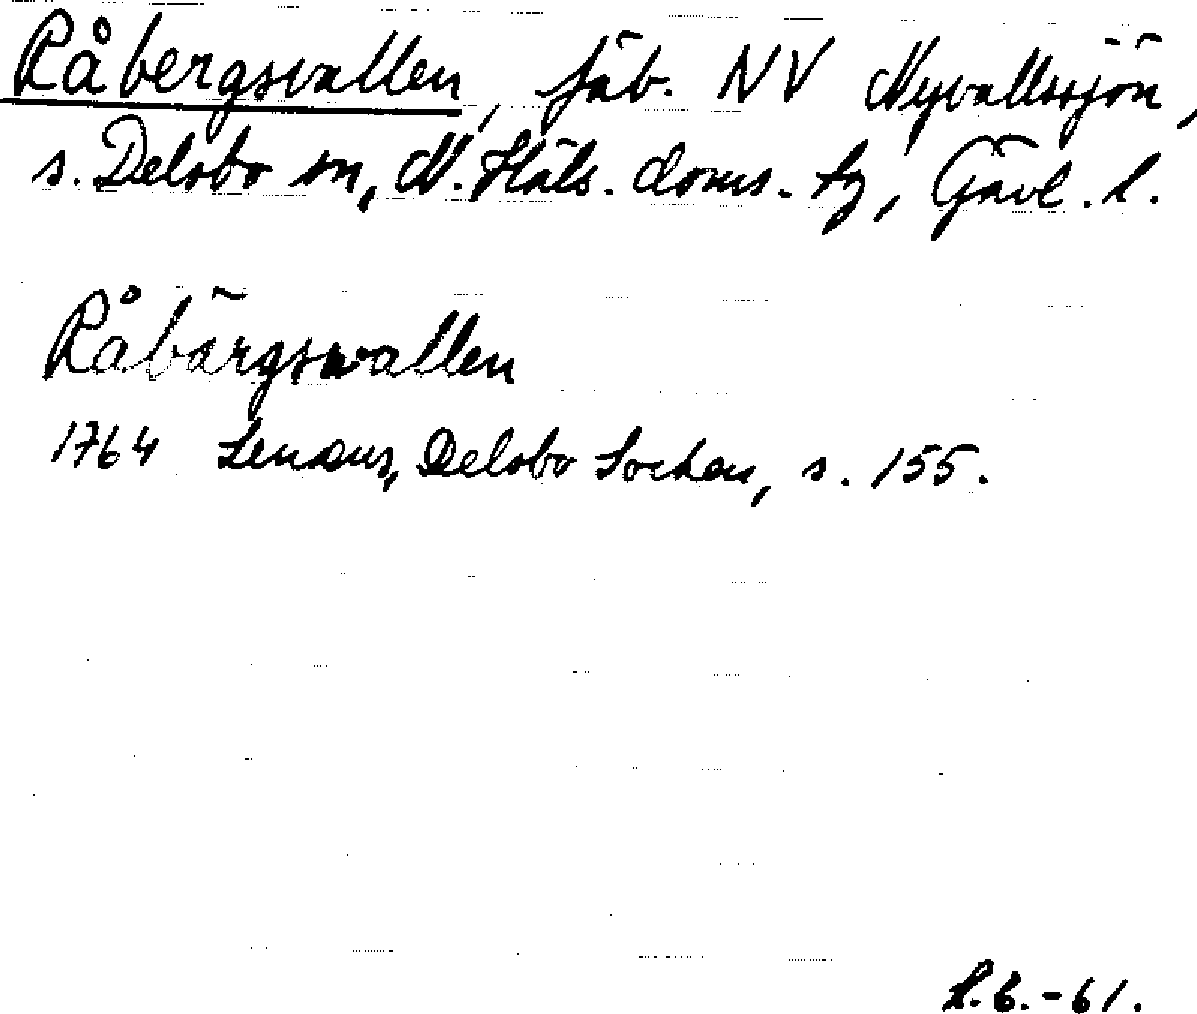 Råbergsvallen, fäb. NV Nyvallssjön,
s. Delsbo sn, N. Häls. doms. tg, Gävl. l.
Råbärgswallen
1764 Lenæus, Delsbo Socken, s. 155.
L.B.-61.